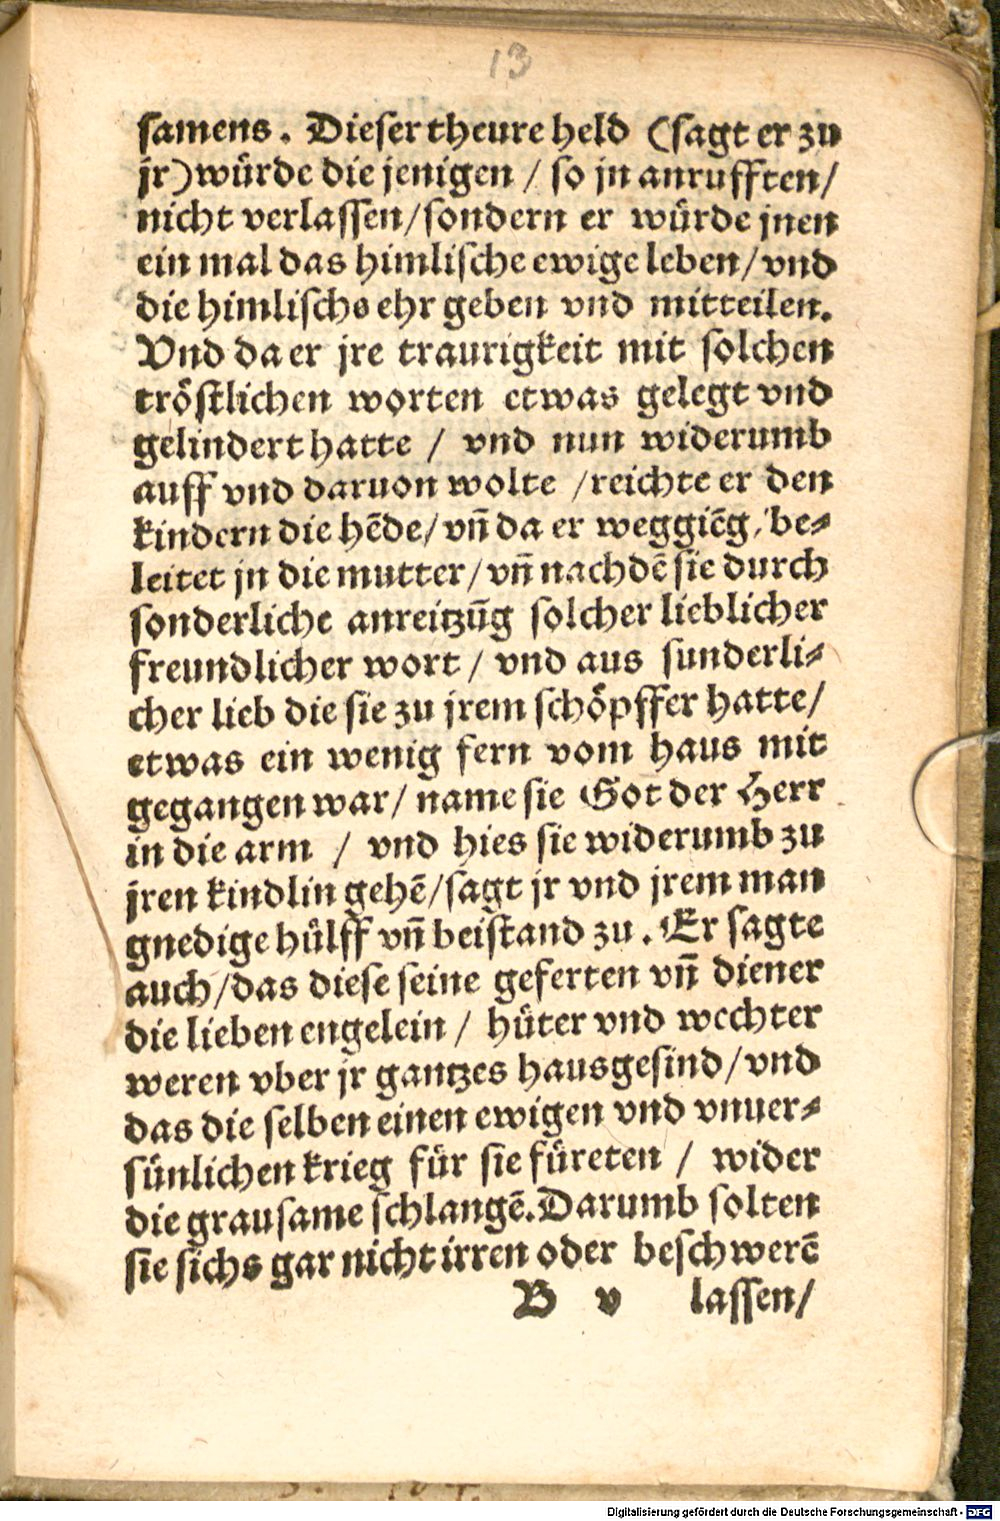 13
samens. Dieser theure held (sagt er zu
jr) würde die jenigen / so jn anrufften/
nicht verlassen/sondern er würde jnen
ein mal das himlische ewige leben/vnd
die himlischs ehr geben vnd mitteilen.
Vnd da er jre traurigkeit mit solchen
tröstlichen worten etwas gelegt vnd
gelindert hatte / vnd nun widerumb
auff vnd daruon wolte /reichte er den
kindern die hēde/vn̄ da er weggiēg/be⸗
leitet jn die mutter/vn̄ nachdē sie durch
sonderliche anreitzūg solcher lieblicher
freundlicher wort / vnd aus sunderli⸗
cher lieb die sie zu jrem schöpffer hatte/
etwas ein wenig fern vom haus mit
gegangen war/ name sie Got der Herr
in die arm / vnd hies sie widerumb zu
jren kindlin gehē/sagt jr vnd jrem man
gnedige hülff vn̄ beistand zu. Er sagte
auch/das diese seine geferten vn̄ diener
die lieben engelein / hüter vnd wechter
weren vber jr gantzes hausgesind/vnd
das die selben einen ewigen vnd vnuer⸗
sünlichen krieg für sie füreten / wider
die grausame schlangē. Darumb solten
sie sichs gar nicht irren oder beschwerē
B v lassen/
Digitalisierung gefördert durch die Deutsche Forschungsgemeinschaft - DFG